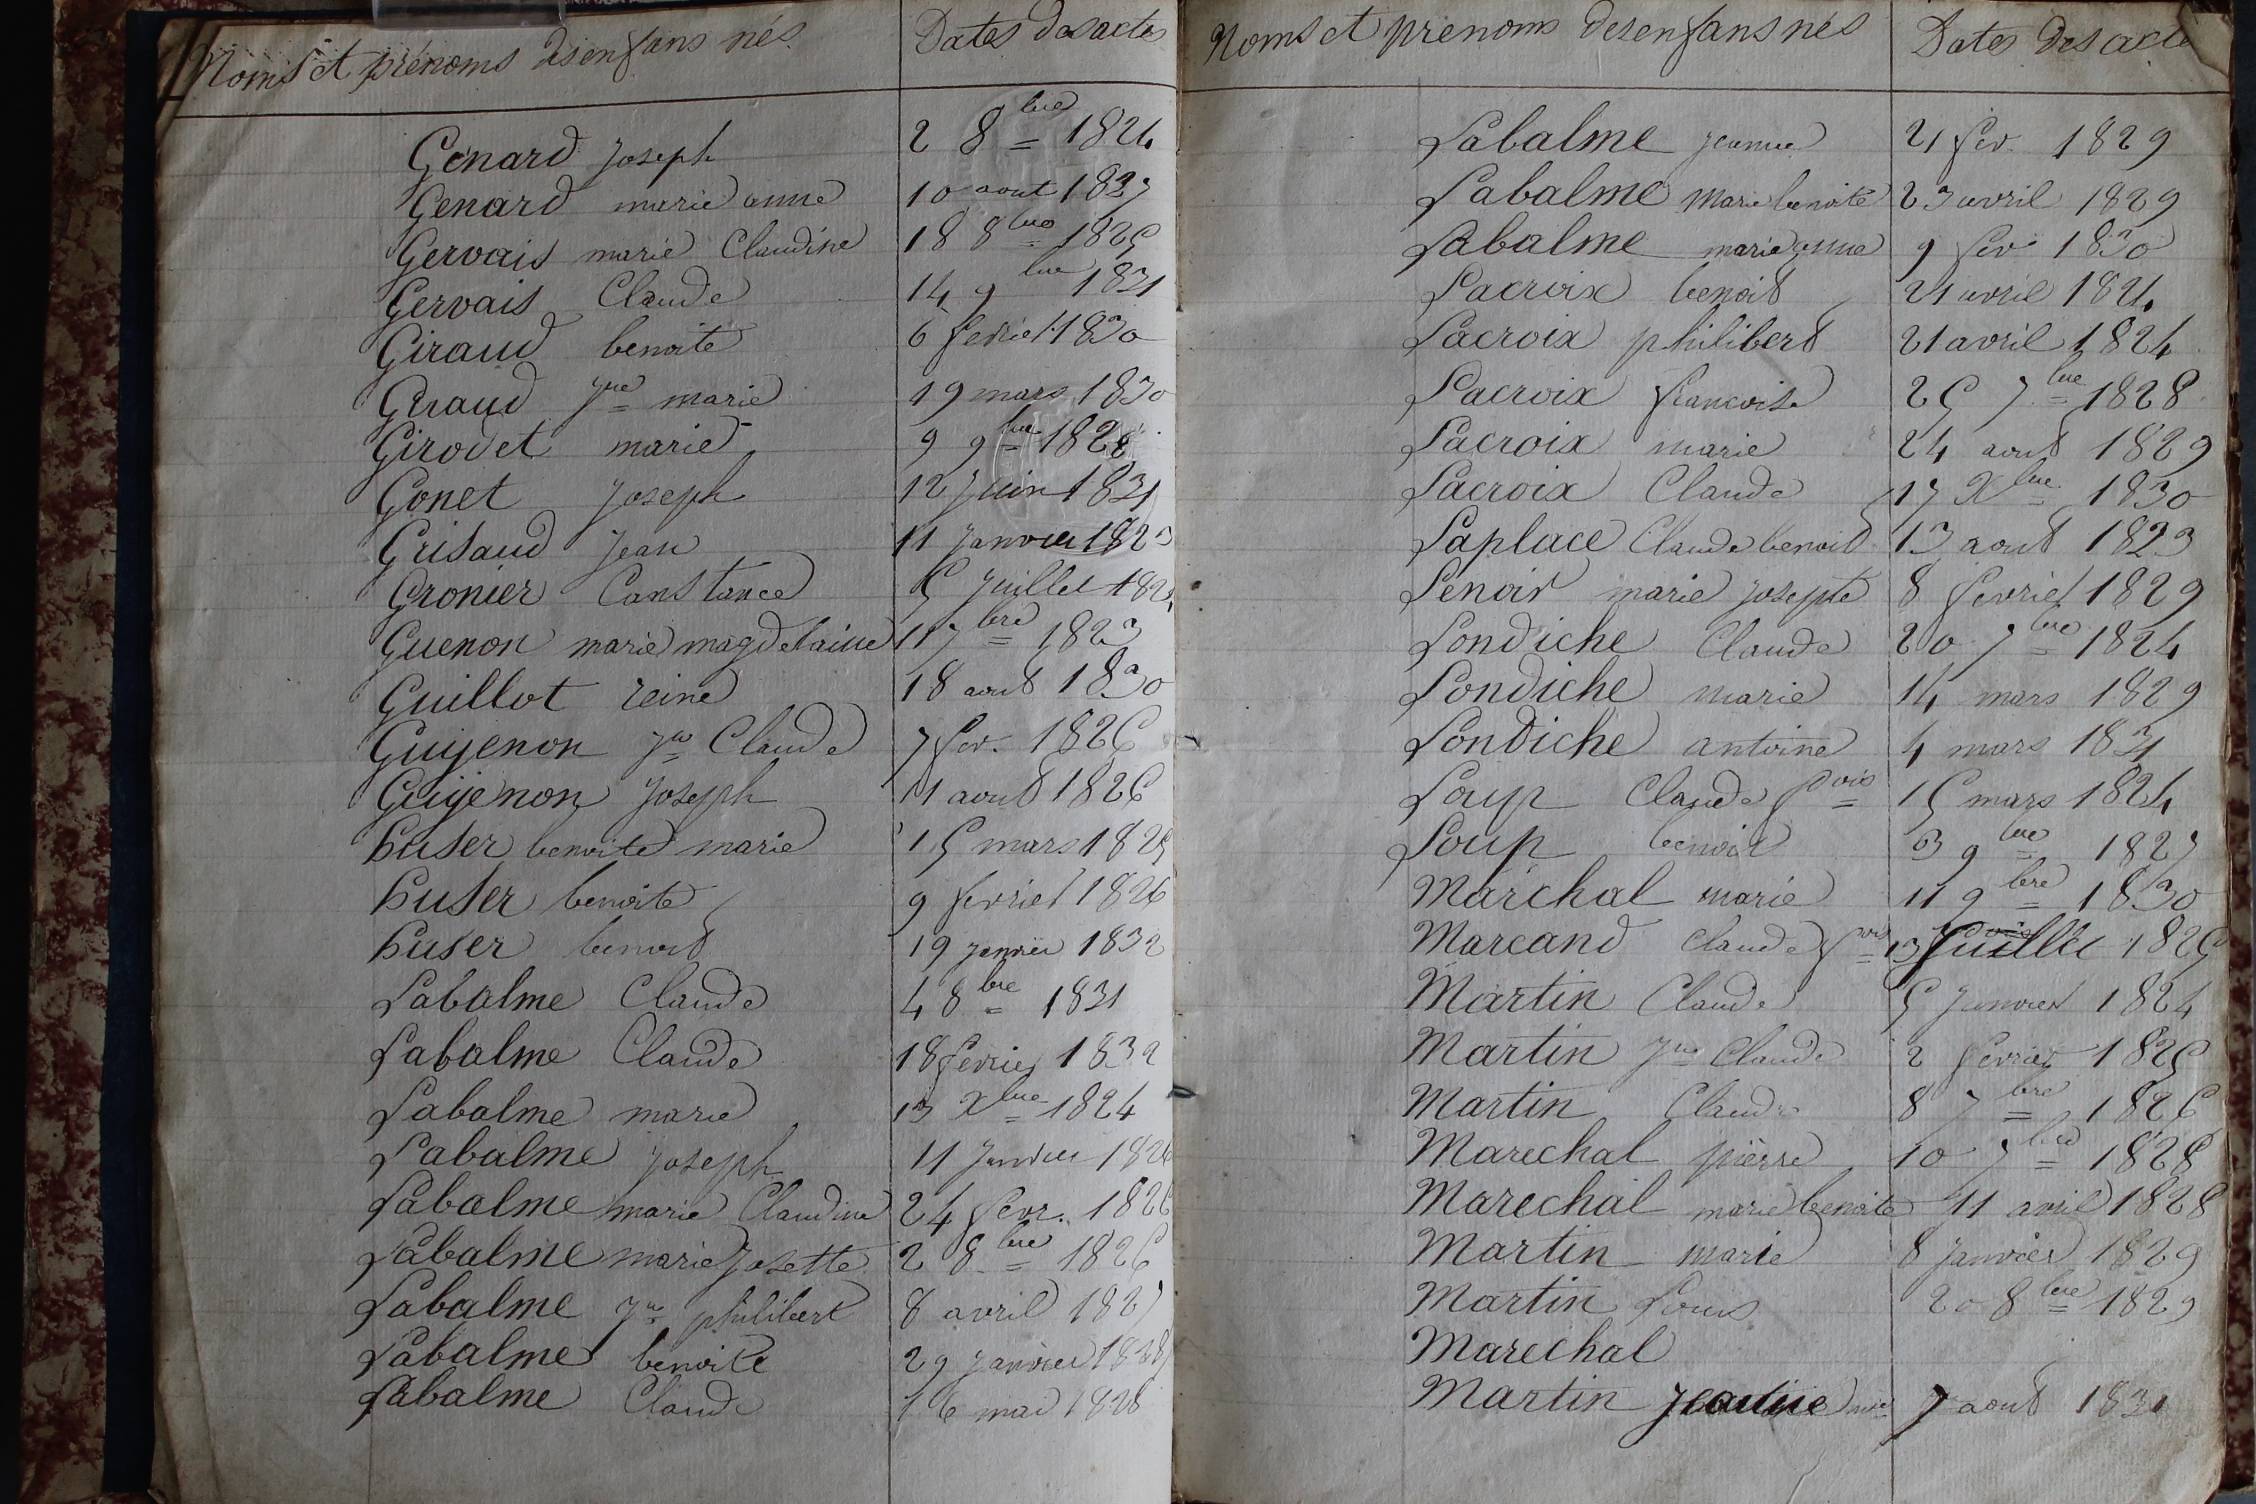 Noms et prénoms des enfans nés Dates des actes
Genard Joseph 2 8bre 1824
Genard marie anne 10 aout 1827
Gervais marie Claudine 18 8bre 1825
Gervais Claude 14 9bre 1831
Giraud benoite 6 fevrier 1830
Giraud jne marie 19 mars 1830
Girodet marie 9 9bre 1828
Gonet Joseph 12 Juin 1831
Grisaud Jean 11 Janvier 1823
Gronier Constance 5 Juillet
Guenon marie magdelaine 11 7bre 1823
Guillot reine 18 aout 1830
Guyenon jn Claude 7 fev. 1826
Guyenon Joseph 11 aout 1826
huser benoite marie 15 mars 1825
huser benoite 9 fevrier 1826
huser benoit 19 janvier 1832
Labalme Claude 4 8bre 1831
Labalme Claude 18 fevrier 1832
Labalme marie 13 Xbre 1824
Labalme Joseph 11 Janvier 1826
Labalme marie Claudine 24 fevr. 1826
Labalme marie Josette 2 8bre 1826
Labalme jn philibert 8 avril 1827
Labalme benoite 29 janvier 1828
Labalme Claude 16 mai 1828
Noms et prenoms des enfans nés Dates des acte
Labalme jeanne 21 fev. 1829
Labalme Marie benoite 23 avril 1829
Labalme marie anne 9 fev 1830
Lacroix benoit 21 avril 1824
Lacroix philibert 21 avril 1824
Lacroix francoise 25 7bre 1828
Lacroix marie 24 aout 1829
Lacroix Claude 17 Xbre 1830
Laplace Claude benoit 13 aout 1823
Lenoir marie josepte 8 fevrier 1829
Londiche Claude 20 7bre 1824
Londiche marie 14 mars 1829
Londiche antoine 4 mars 1831
Loup Claude fois 15 mars 1824
Loup benoit 3 9bre 1827
Marchal marie 11 9bre 1830
Marcand Claude fois 13 Juillet 1825
Martin Claude 5 Janvier 1824
Martin jn Claude 2 fevrier 1825
Martin Claude 8 7bre 1826
Marechal pierre 10 7bre 1828
Marechal marie benoite 11 avril 1828
Martin marie 8 janvier 1829
Martin Louis 20 8bre 1829
Marechal
Martin jeanne mie 7 aout 1831